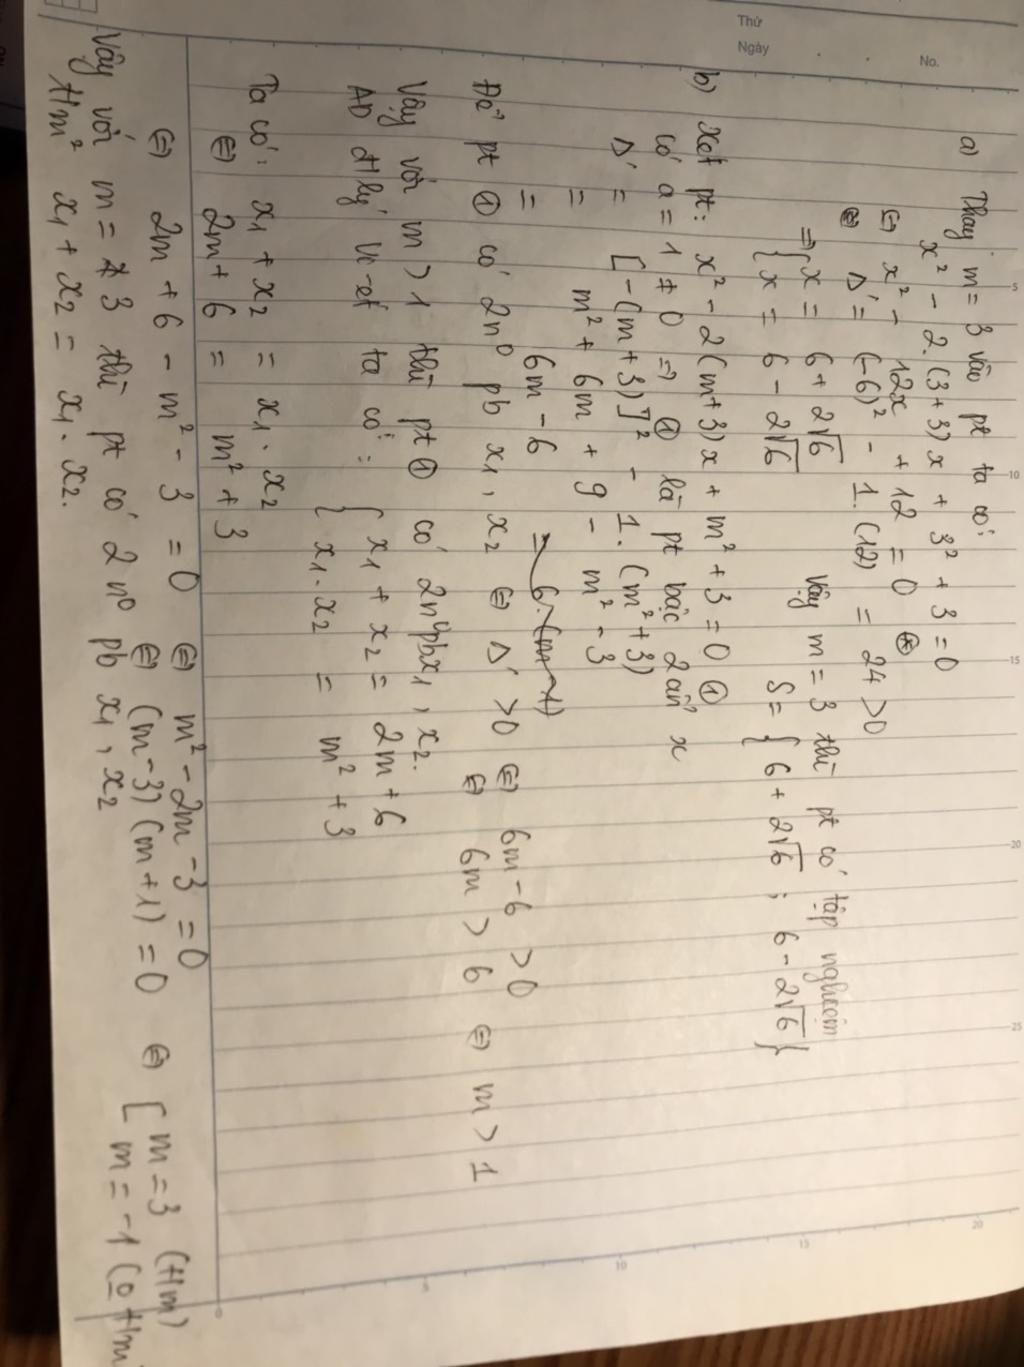 Thứ
Ngày
No.
a) Thay m = 3 vào pt ta có:
x² - 2.(3+3)x + 3² + 3 = 0
⇔ x² - 12x + 12 = 0 (*)
Δ' = (-6)² - 1.(12) = 24 > 0
⇒ { x = 6 + 2√6
x = 6 - 2√6
Vậy m = 3 thì pt có tập nghiệm
S = { 6 + 2√6 ; 6 - 2√6 }
b) Xét pt: x² - 2(m+3)x + m² + 3 = 0 ①
có a = 1 ≠ 0 ⇒ ① là pt bậc 2 ẩn x
Δ' = [-(m+3)]² - 1.(m² + 3)
= m² + 6m + 9 - m² - 3
= 6m - 6
Để pt ① có 2n⁰ pb x₁, x₂ ⇔ Δ' > 0 ⇔ 6m - 6 > 0
⇔ 6m > 6 ⇔ m > 1
Vậy với m > 1 thì pt ① có 2n⁰pb x₁, x₂.
AD đlý Vi-et ta có: { x₁ + x₂ = 2m + 6
x₁ . x₂ = m² + 3
Ta có: x₁ + x₂ = x₁ . x₂
⇔ 2m + 6 = m² + 3
⇔ 2m + 6 - m² - 3 = 0 ⇔ m² - 2m - 3 = 0
⇔ (m-3)(m+1) = 0 ⇔ [ m = 3 (t/m)
m = -1 (o t/m
Vậy với m = 3 thì pt có 2 n⁰ pb x₁, x₂
t/m² x₁ + x₂ = x₁ . x₂.